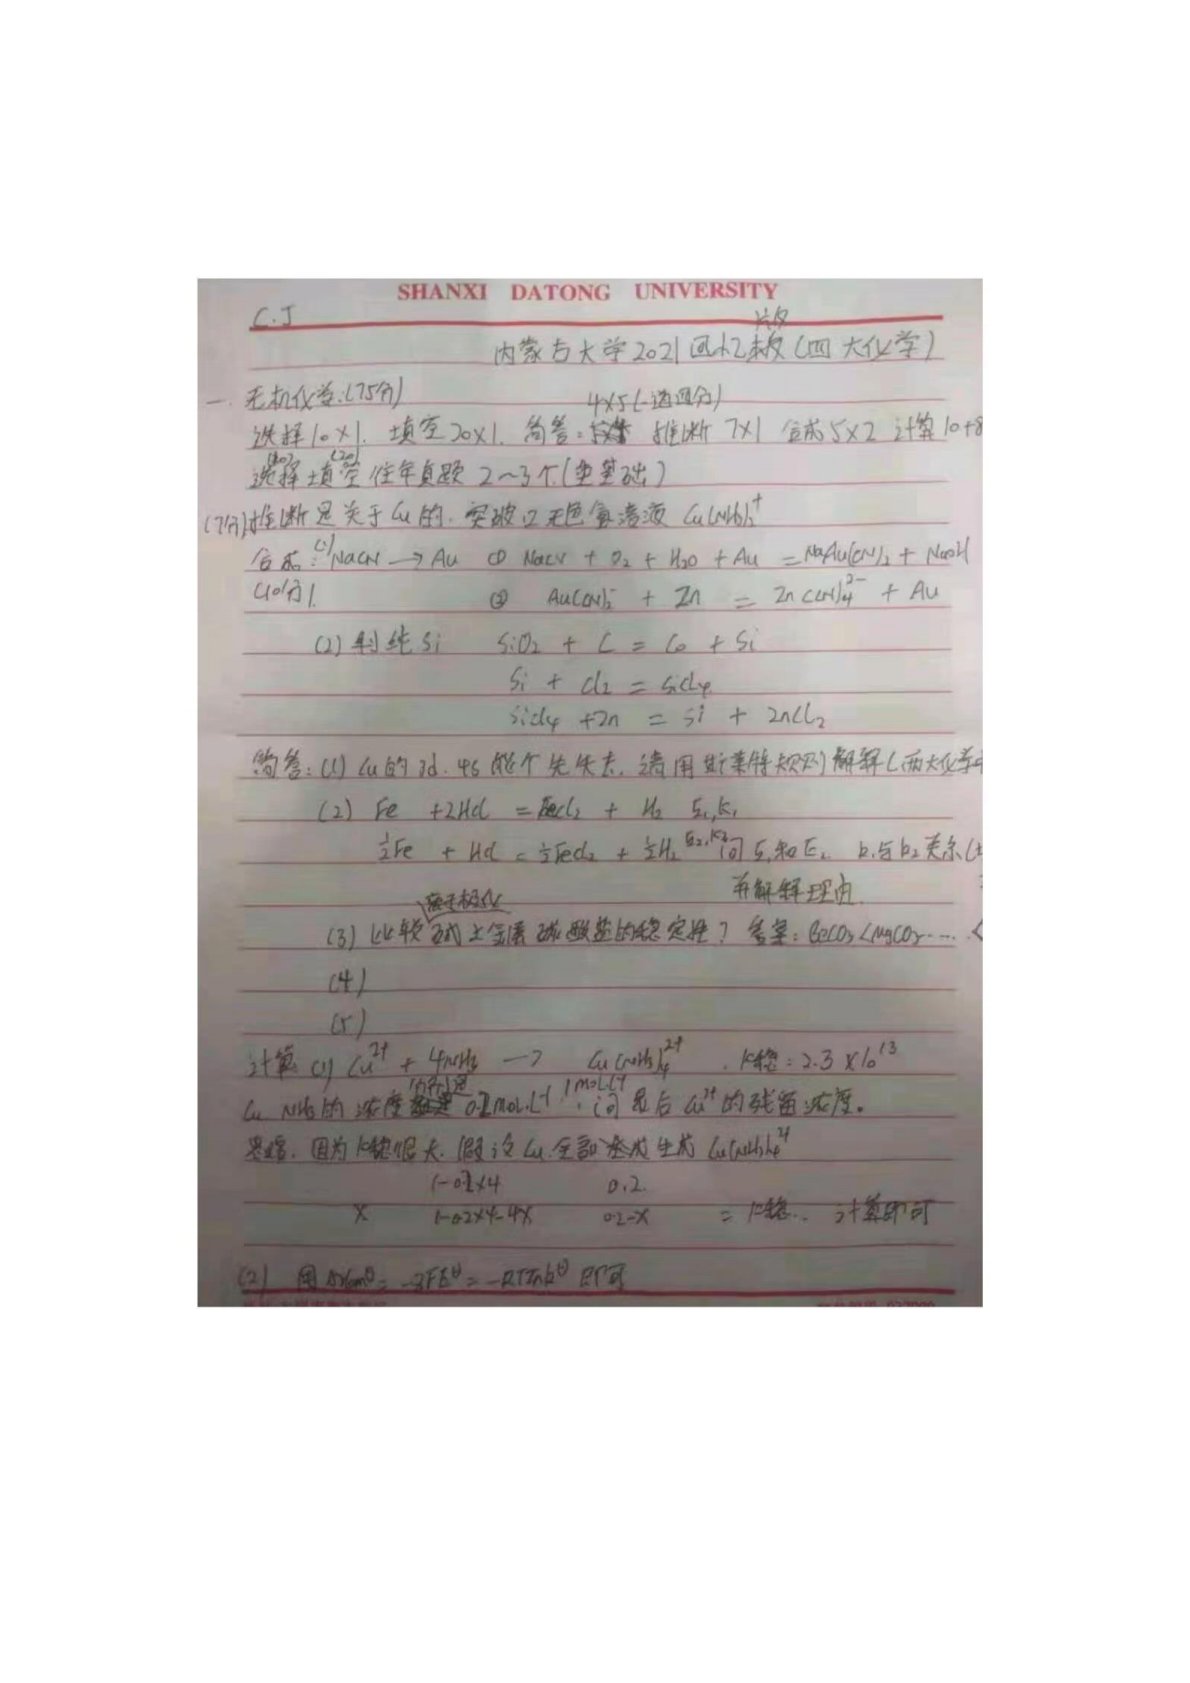 SHANXI DATONG UNIVERSITY
C.J
版
内蒙古大学2021回忆(四大化学)
一. 无机化学:(75分)
4×5(一道四分)
选择10×1. 填空20×1. 简答: 推断 7×1 合成5×2 计算10+8
(10) (20)
选择填空 往年真题 2~3个(重基础)
(7分)推断是关于Cu的. 突破口无色氨溶液 Cu(NH3)2+
合成:(1) NaCN → Au ① NaCN + O2 + H2O + Au = NaAu(CN)2 + NaOH
(10分). ② Au(CN)2- + Zn = Zn(CN)4 2- + Au
(2) 制纯Si SiO2 + C = CO + Si
Si + Cl2 = SiCl4
SiCl4 + Zn = Si + ZnCl2
简答:(1) Cu的3d. 4s哪个先失去. 请用斯莱特规则解释(两大化学
(2) Fe +2HCl = FeCl2 + H2 E1,K1
½Fe + HCl = ½FeCl2 + ½H2 E2,K2 问E1和E2 k1与k2关系(
并解释理由.
离子极化
(3) 比较碱土金属碳酸盐的稳定性? 答案: BeCO3<MgCO3.....<
(4)
(5)
计算 (1) Cu2+ + 4NH3 → Cu(NH3)4 2+ . K稳: 2.3×10 13
分别是 1mol.L-1
Cu NH3的浓度 0.2mol.L-1 . 问最后Cu2+的残留浓度。
思路. 因为K稳很大. 假设Cu全部生成Cu(NH3)4 2+
1-0.2×4 0.2
x 1-0.2×4-4x 0.2-x = K稳.. 计算即可
(2) 用ΔrGmθ = -ZFEθ = -RTlnkθ 即可